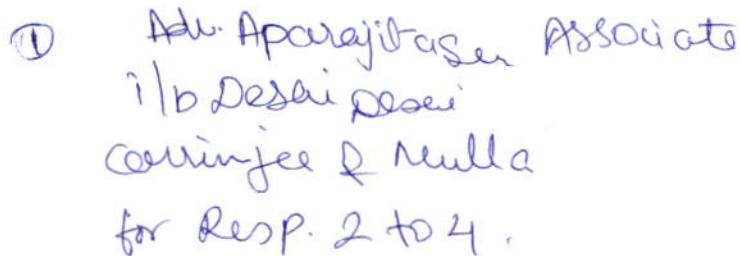 ① Adv. Aparajita Sen Associate
i/b Desai Desai
Carrimjee & Mulla
for Resp. 2 to 4.